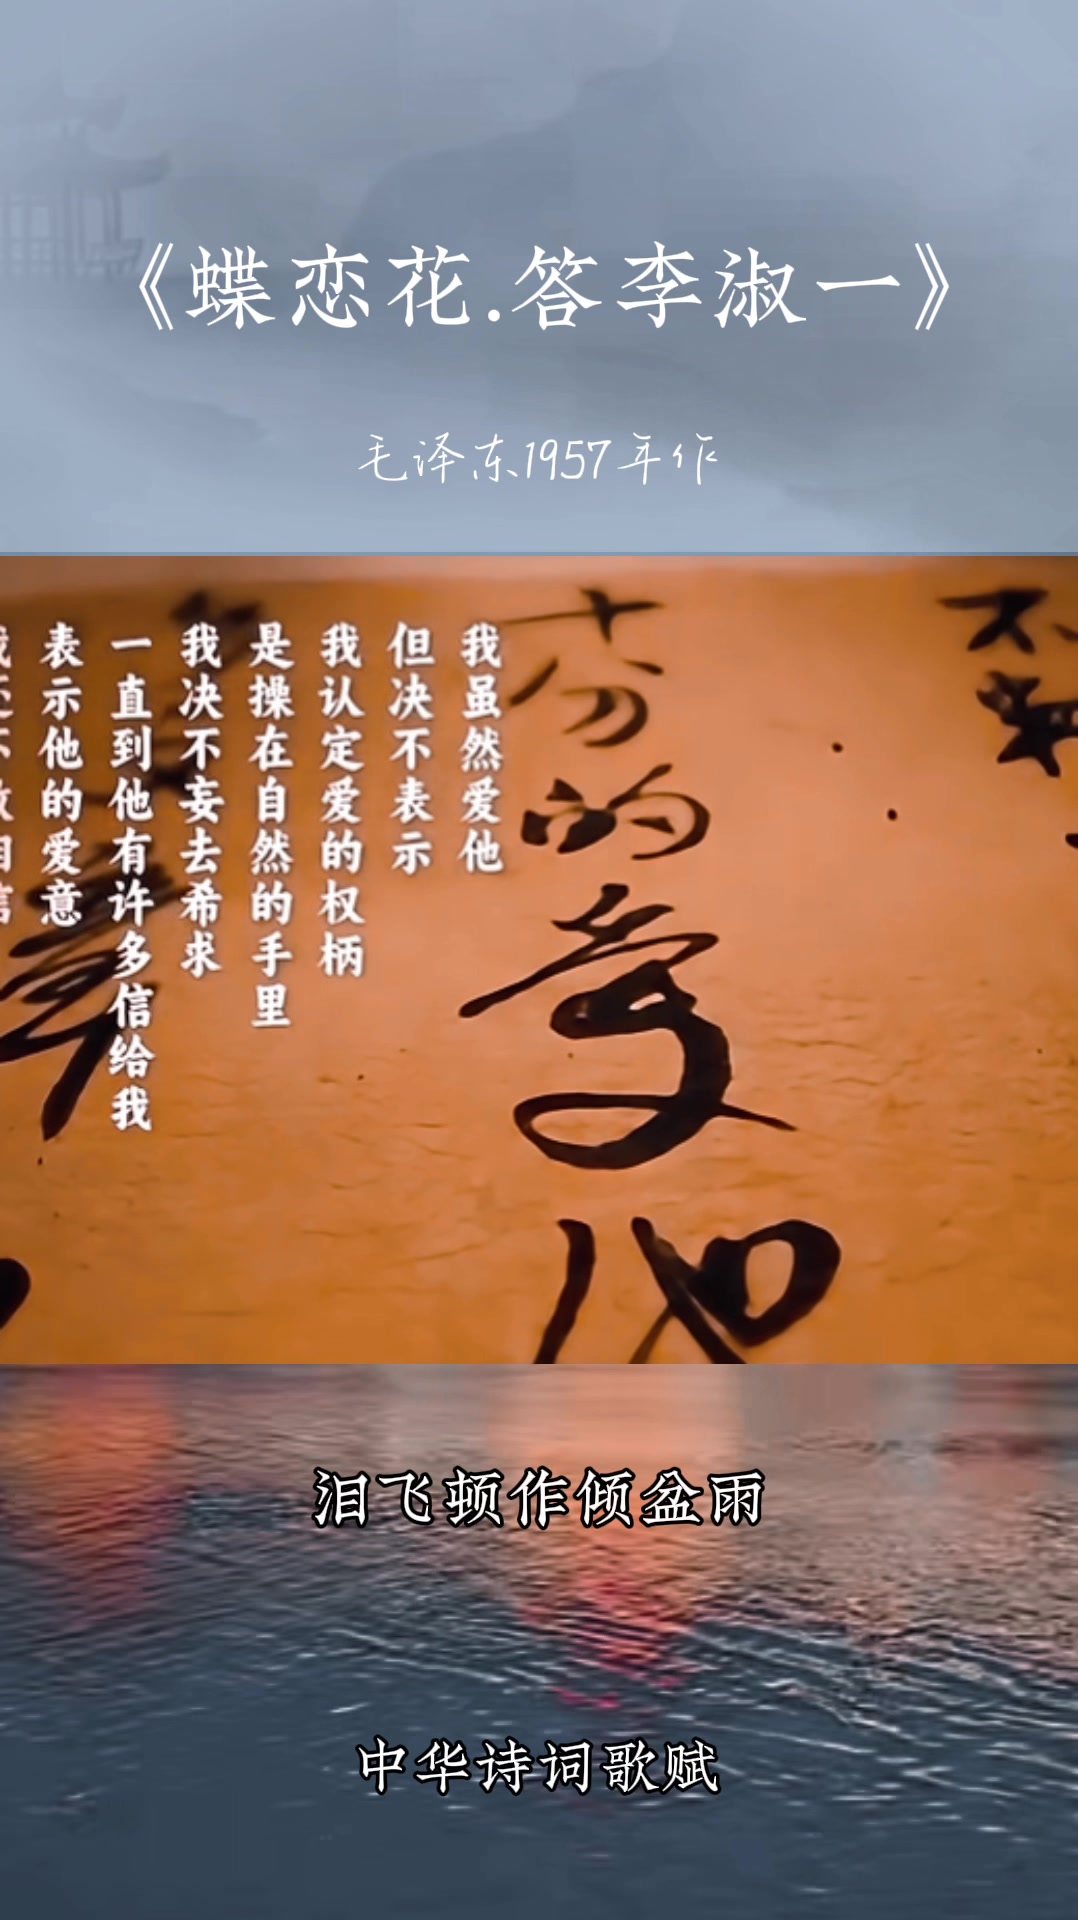 《蝶恋花.答李淑一》
毛泽东1957年作
十分的爱他
我虽然爱他
但决不表示
我认定爱的权柄
是操在自然的手里
我决不妄去希求
一直到他有许多信给我
表示他的爱意
泪飞顿作倾盆雨
中华诗词歌赋